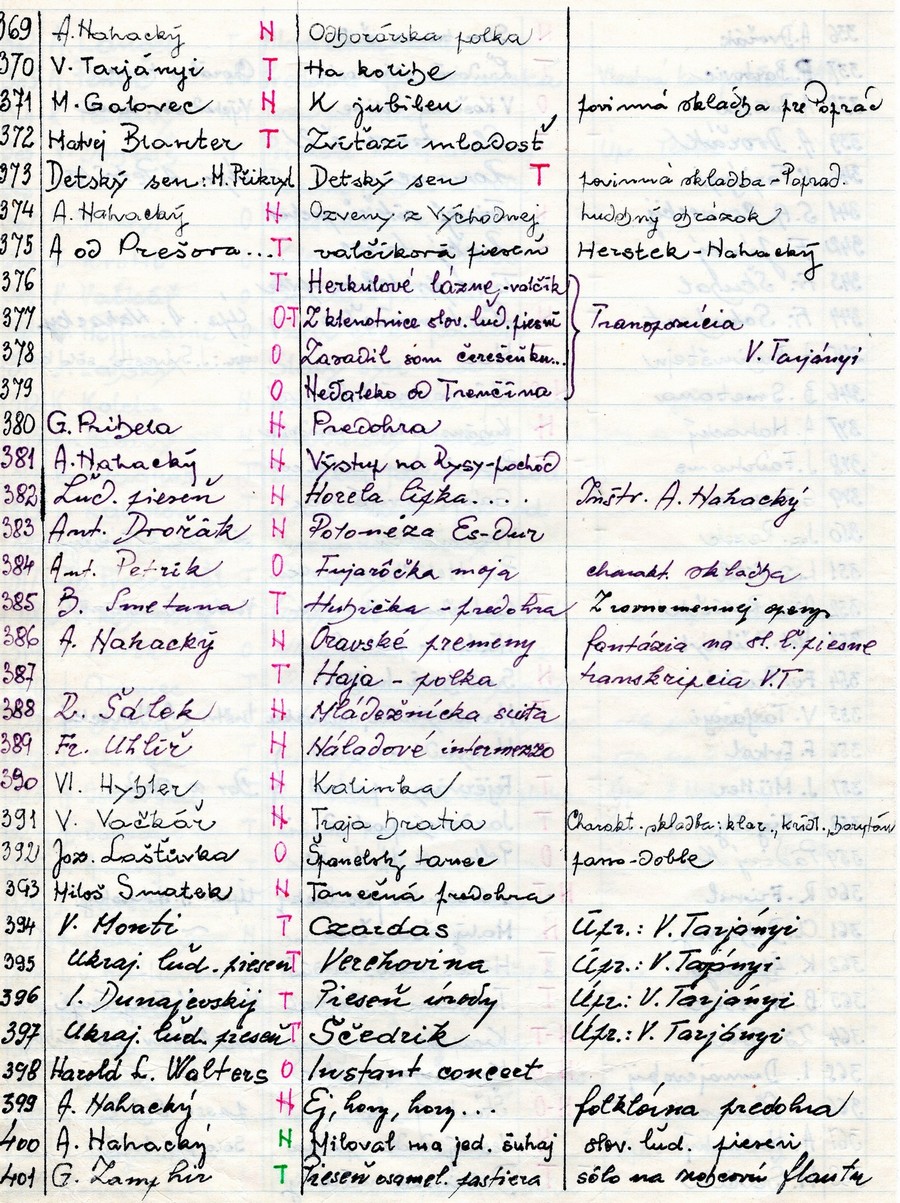 369 A. Hahacký H Odborárska polka
370 V. Tarjányi T Na kolibe
371 M. Galovec H K jubileu povinná skladba pre Poprad
372 Matej Blanter T Zvíťazí mladosť
373 Detský sen: M. Přikryl Detský sen T povinná skladba - Poprad.
374 A. Hahacký H Ozveny z Východnej hudobný obrázok
375 A od Prešova... T valčíková pieseň Herstek - Hahacký
376 T Herkulové lázne - valčík
377 O-T Z klenotnice slov. lud. piesní Transpozícia
378 O Zasadil som čerešenku... V. Tarjányi
379 O Neďaleko od Trenčína
380 G. Pribela H Predohra
381 A. Hahacký H Výstup na Rysy - pochod
382 Ľud. pieseň H Horela lipka.... Inštr. A. Hahacký
383 Ant. Dvořák H Polonéza Es-Dur
384 Ant. Petrik O Fujarôčka moja charakt. skladba
385 B. Smetana T Hubička - predohra Z rovnomennej opery
386 A. Hahacký H Oravské premeny fantázia na sl. ľ. piesne
387 T Haja - polka transkripcia V.T
388 R. Šálek H Mládežnícka suita
389 Fr. Uhlíř H Náladové intermezzo
390 Vl. Hybler H Kalinka
391 V. Vačkář H Traja bratia Charakt. skladba: klar., krídl., barytón
392 Joz. Laštůvka O Španielský tanec paso-doble
393 Miloš Smatek H Tanečná predohra
394 V. Monti T Czardas Úpr.: V. Tarjányi
395 Ukraj. ľud. pieseň T Verchovina Úpr.: V. Tarjányi
396 I. Dunajevskij T Pieseň úrody Úpr.: V. Tarjányi
397 Ukraj. ľud. pieseň T Ščedrik Úpr.: V. Tarjányi
398 Harold L. Walters O Instant concert
399 A. Hahacký H Ej, hory, hory... folklórna predohra
400 A. Hahacký H Miloval ma jed. šuhaj slov. ľud. pieseň
401 G. Zamphir T Pieseň osamel. pastiera sólo na zobcovú flautu